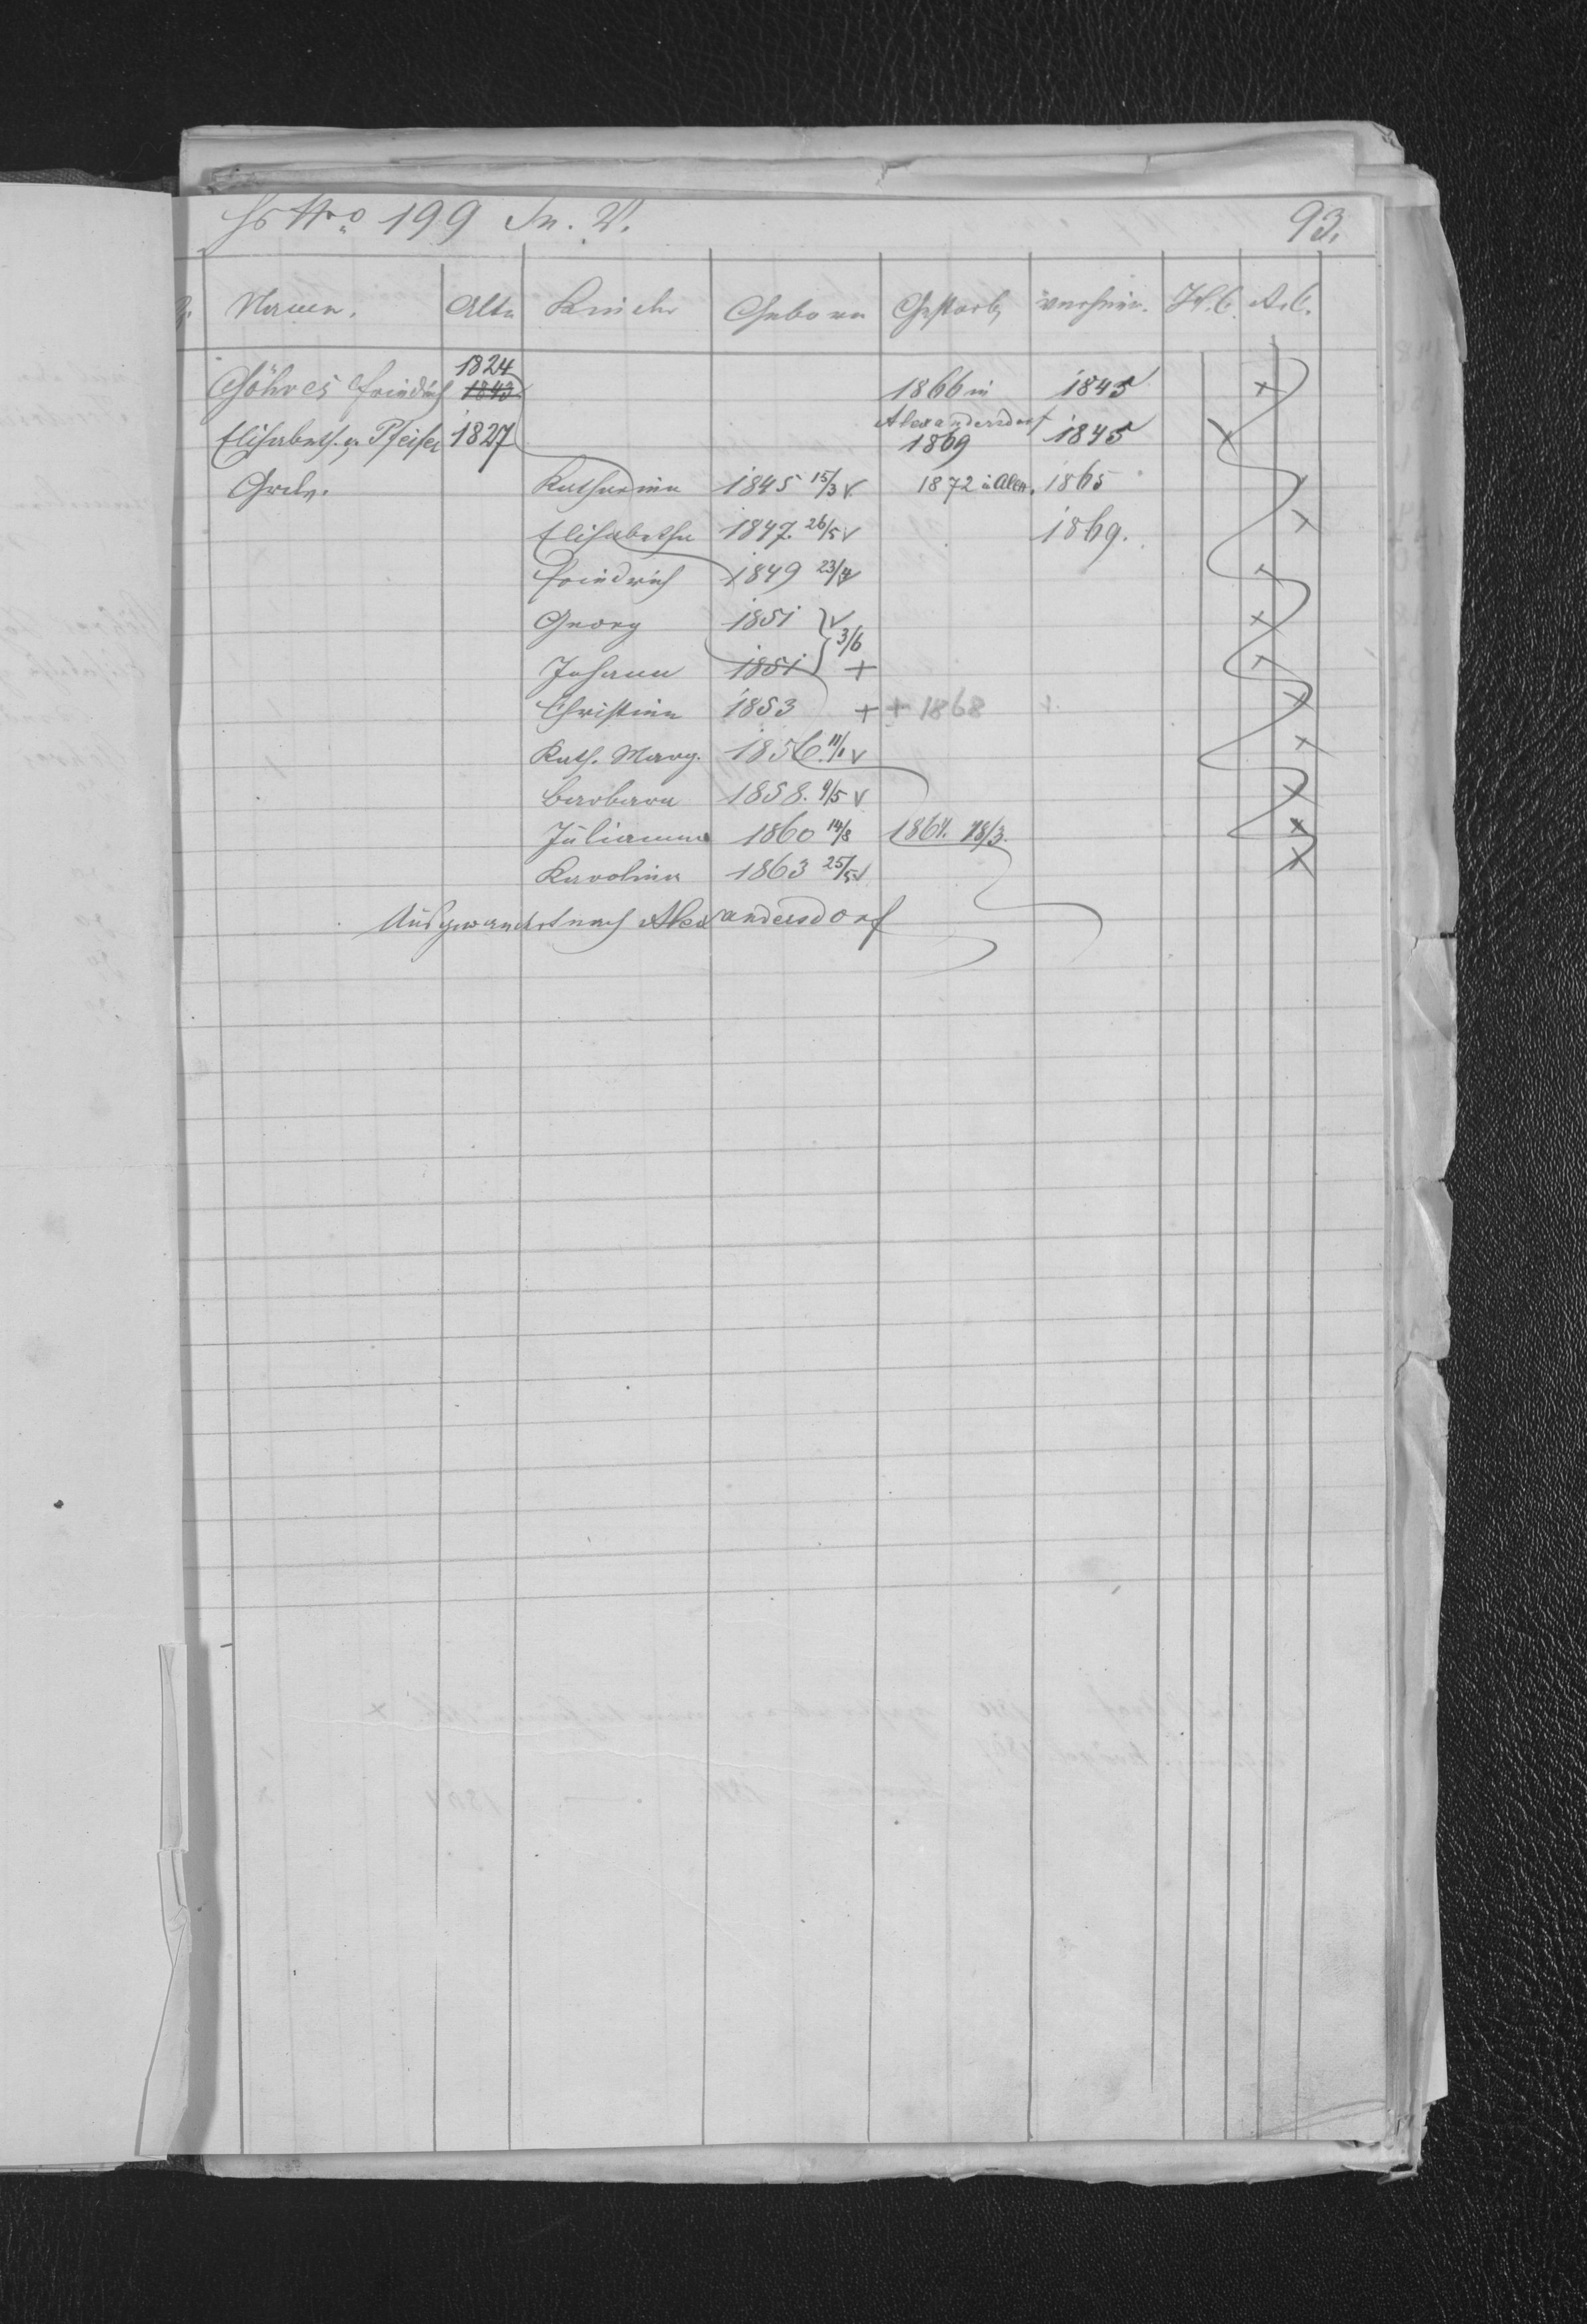 Hs Nro 199 93.
Namen. Alter Kinder Geboren Gestorb. verheir.
1824
Göhres Friedrich 1843 1866 in 1845
Alexandersdorf
Elisabeth. g. Pfeifer 1827 1869 1845
Katharina 1845 15/3 v 1872 in Alex. 1865
Elisabetha 1847. 26/5 v 1869.
Friedrich 1849 23/4 v
Georg 1851 } v
3/6
Johann 1851 +
Christina 1853 + + 1868
Kath. Marg. 1856. 11/1 v
Barbara 1858. 9/5 v
Julianna 1860 14/8 1864. 18/3.
Karolina 1863 25/5 v
Ausgewandert nach Alexandersdorf